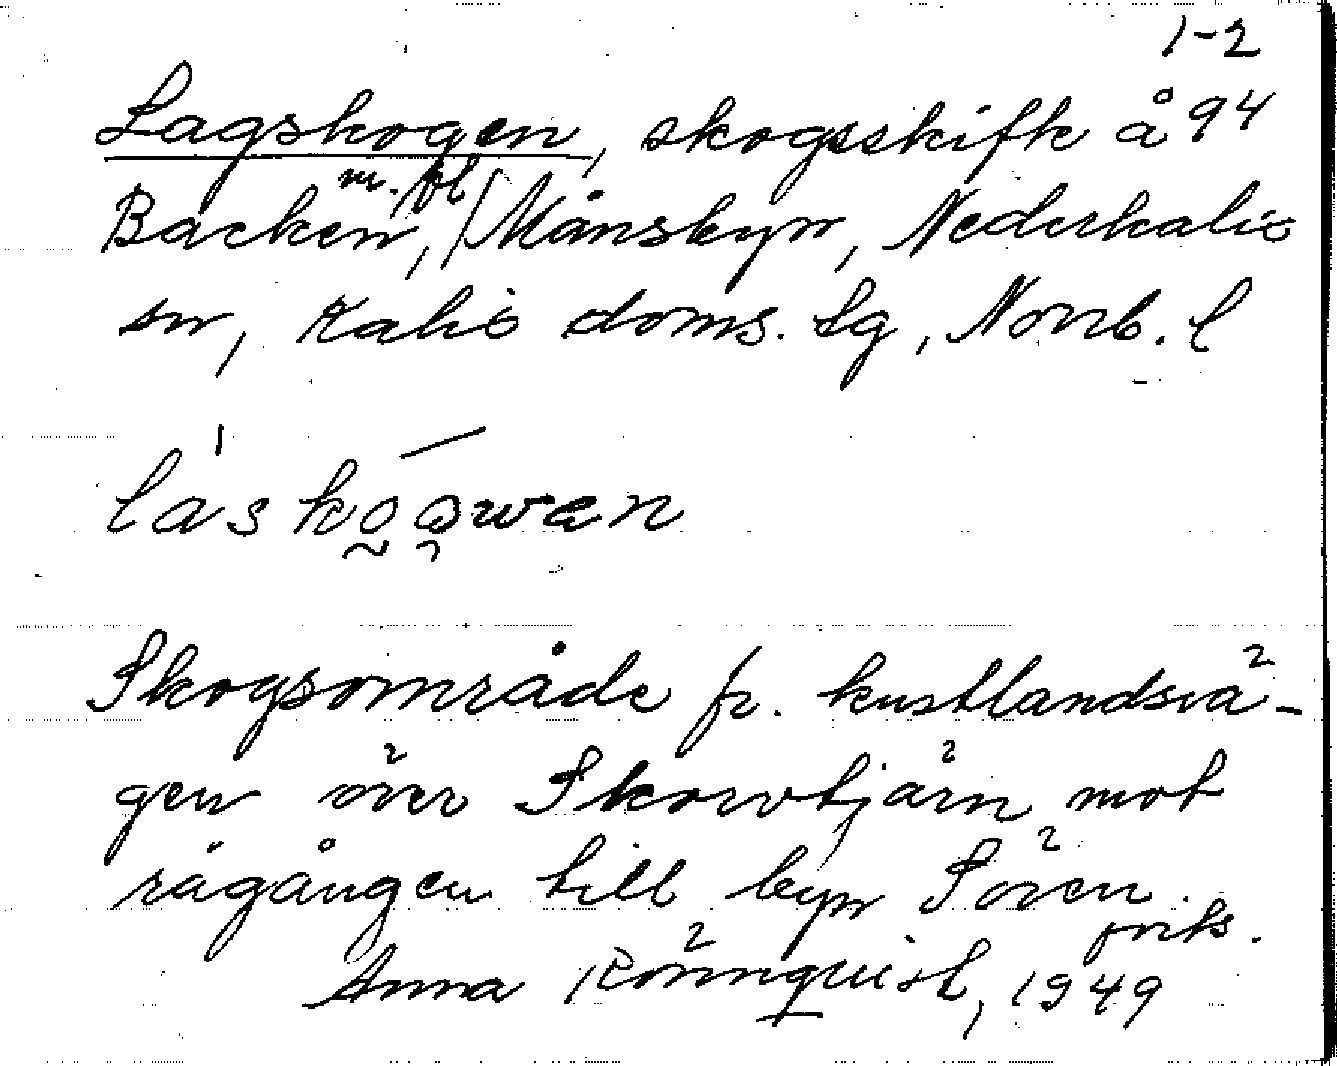 1-2
Lagskogen, skogsskifte å 94
Backen, m. fl / Månsbyn, Nederkalix
sn, Kalix doms. lg, Norrb. l
láskǫǫwan
Skogsområde fr. kustlandsvä-
gen över Skorvtjärn mot
rågången till byn Sören.
forts.
Anna Rönnquist, 1949